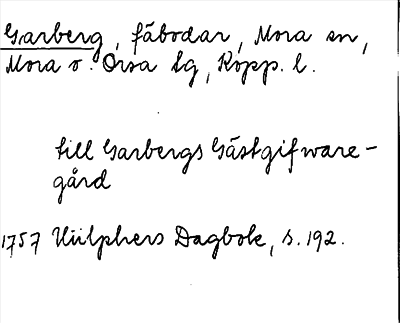 Garberg, fäbodar, Mora sn,
Mora o. Orsa tg, Kopp. l.
till Garbergs Gästgifware-
gård
1757 Hülphers Dagbok, s. 192.